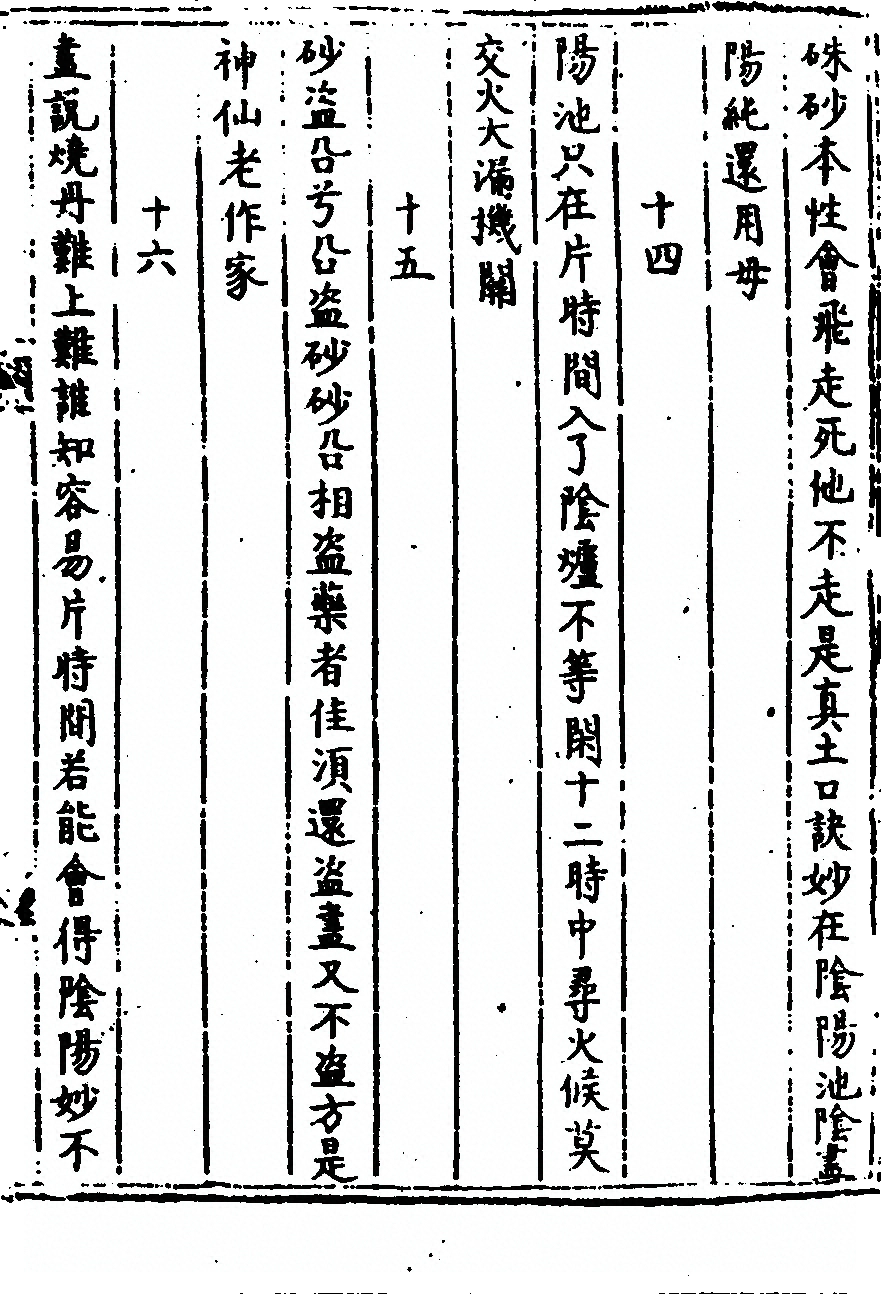 硃砂本性會飛走死他不走是真土口訣妙在陰陽池陰盡
陽純還用母
十四
陽池只在片時間入了陰爐不等閑十二時中尋火候莫
交火大漏機關
十五
砂盗㕣兮㕣盗砂砂㕣相盗藥者佳湏還盗盡又不盗方是
神仙老作家
十六
盡說燒丹難上難誰知容易片時間若能會得陰陽妙不